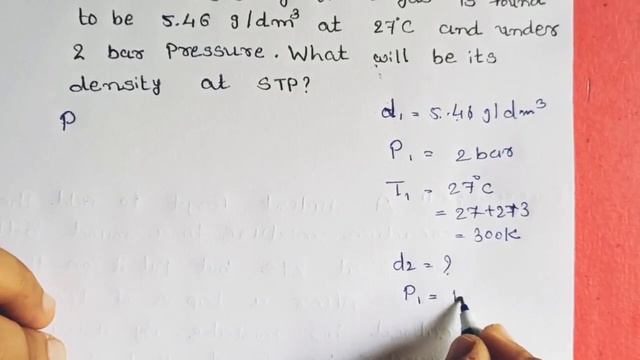 gas is found
to be 5.46 g/dm³ at 27°C and under
2 bar Pressure. What will be its
density at STP?
P
d₁ = 5.46 g/dm³
P₁ = 2 bar
T₁ = 27°C
= 27+273
= 300K
d₂ = ?
P₁ =